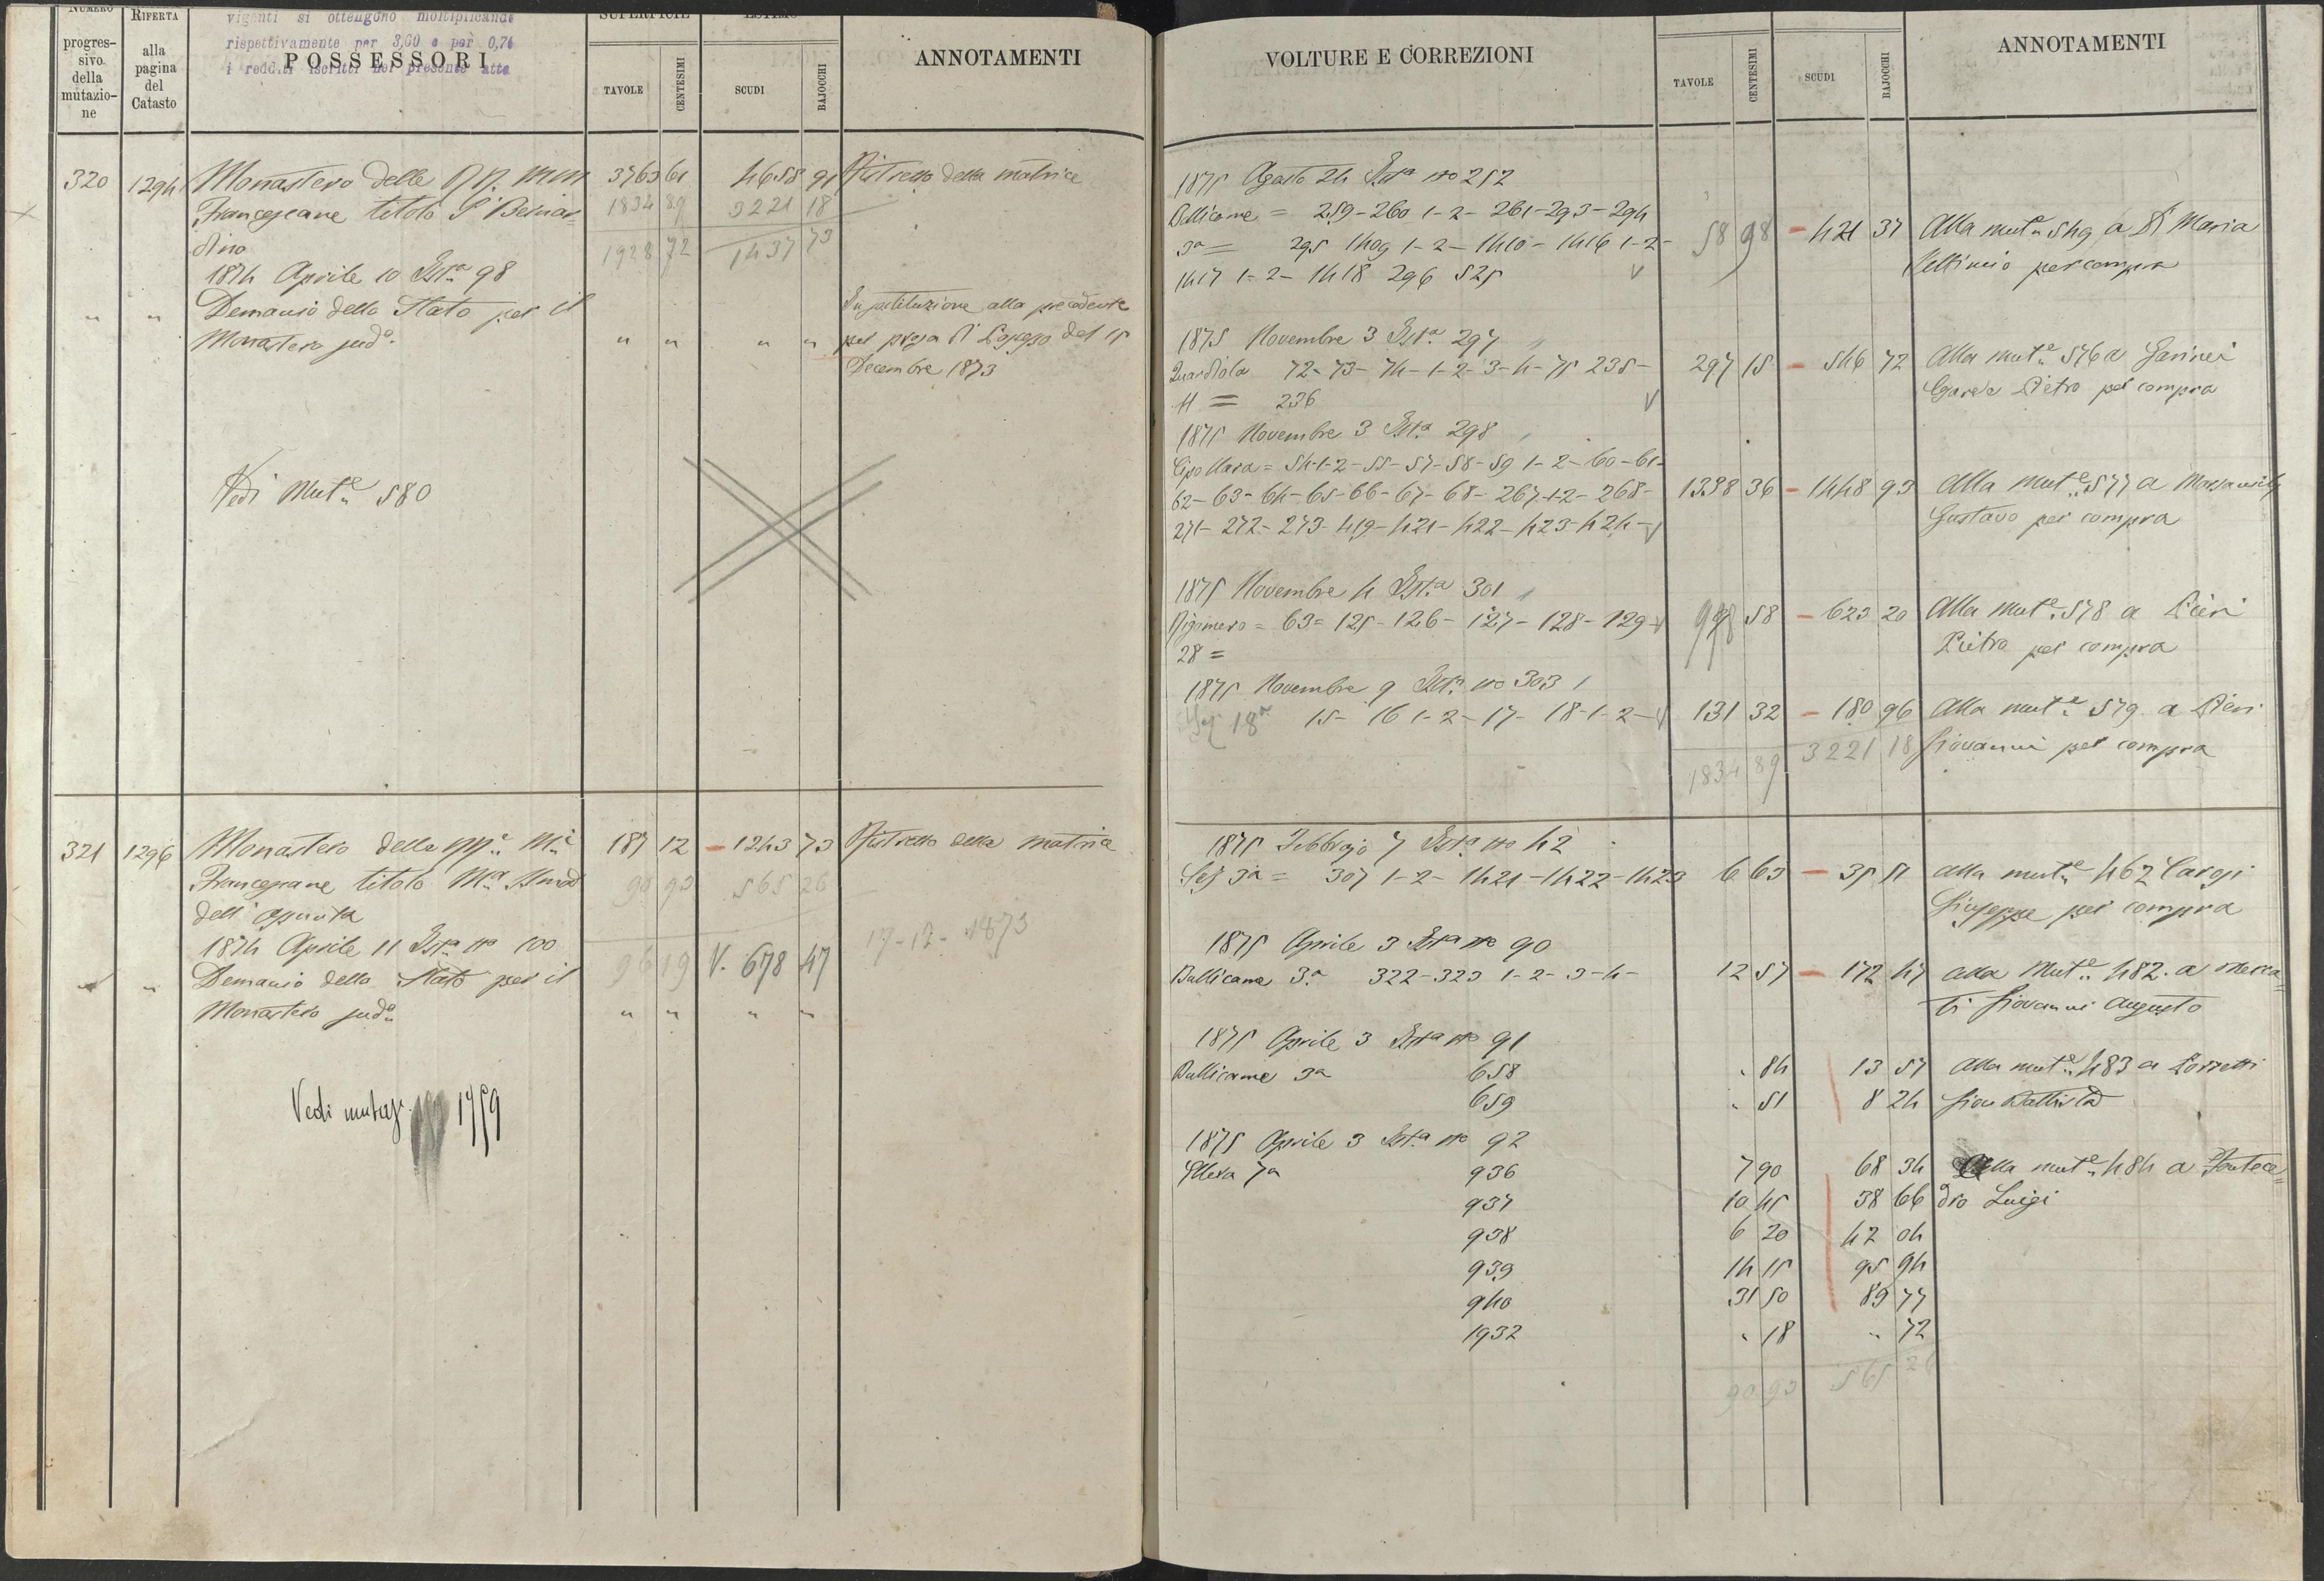 NUMERO
progres-
sivo
della
mutazio-
ne
RIFERTA
alla
pagina
del
Catasto
vigenti si ottengono moltiplicando
rispettivamente per 3,60 e per 0,74
POSSESSORI
i redditi iscritti nel presente atto
SUPERFICIE
TAVOLE
CENTESIMI
ESTIMO
SCUDI
BAJOCCHI
ANNOTAMENTI
320 1294 Monastero delle 3763 61 4658 91 Ristretto della matrice
Francescane titolo S. Bernar= 1834 89 3221 18
dino 1928 72 1437 73
1874 Aprile 10 Ista 98
" " Demanio dello Stato per il
Monastero sudo. " " " "
per presa di Possesso del 15
Decembre 1873
Vedi Mute 580
321 1296 Monastero delle 187 12 - 1243 73 Ristretto della matrice
Francescane titolo 90 93 565 26
1874 Aprile 11 Ista no 100 17-12-1873
96 19 V. 678 47
" " Demanio dello Stato per il
Monastero sudo " " " "
Vedi mutaz. 1759
VOLTURE E CORREZIONI
TAVOLE
CENTESIMI
SCUDI
BAJOCCHI
ANNOTAMENTI
1875 Agosto 24 Ista no 252
Bullicame = 259-260 1-2- 261-293-294
3a = 295 1409 1-2- 1410- 1416 1-2- 58 98 - 421 37 Alla mute 549 a Di Maria
1417 1-2- 1418 296 525 V per compra
1875 Novembre 3 Ista 297
72-73-74-1-2-3-4-75 235- 297 15 - 546 72 Alla mute 576 a
11 = 236 V Pietro per compra
1875 Novembre 3 Ista 298
Cipollara = 54-1-2-55-57-58-59 1-2-60-61-
62-63-64-65-66-67-68-267-1-2-268- 1338 36 - 1448 93 Alla mute 577 a
271-272-273-419-421-422-423-424- V Gustavo per compra
1875 Novembre 4 Ista 301
63=125-126-127-128-129 V 58 - 623 20 Alla mute 578 a Pieri
28 = Pietro per compra
1875 Novembre 9 Ista no 303
18a 15- 16 1-2-17- 18-1-2- V 131 32 - 180 96 Alla mute 579 a Pieri
1834 89 3221 18 Giovanni per compra
1875 Febbrajo 7 Ista no 42
Sez 3a = 307 1-2- 1421-1422-1423 6 63 - 35 51 alla mute 462
Giuseppe per compra
1875 Aprile 3 Ista no 90
Bullicame 3a 322-323 1-2-3-4- 12 57 - 172 47 alla Mute 482 a Merca=
ti Giovanni Augusto
1875 Aprile 3 Ista no 91
Bullicame 3a 658 " 84 13 57 Alla mute 483 a
659 " 51 8 24 Gion Battista
1875 Aprile 3 Ista no 92
7a 936 7 90 68 34 Alla mute 484 a Fontece=
937 10 45 38 66 dro Luigi
938 6 20 42 04
939 14 15 95 94
940 31 50 89 77
1932 " 18 " 72
90 93 565 26